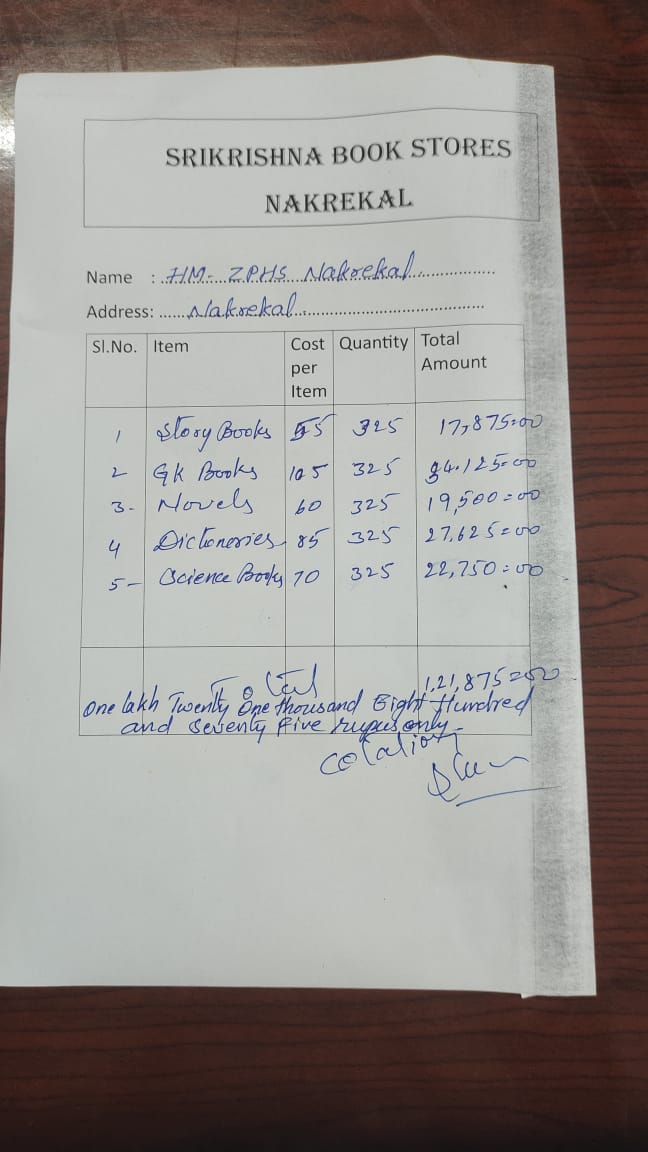 SRIKRISHNA BOOK STORES
NAKREKAL
Name : HM- ZPHS Nakrekal
Address: Nakrekal
Sl.No. Item Cost per Item Quantity Total Amount
1 Story Books 55 325 17,875=00
2 GK Books 105 325 34.125=00
3- Novels 60 325 19,500=00
4 Dictoneries 85 325 27,625=00
5- Science Books 70 325 22,750=00
Total 1,21,875=00
One lakh Twenty One thousand Eight Hundred
and Seventy five rupus only-